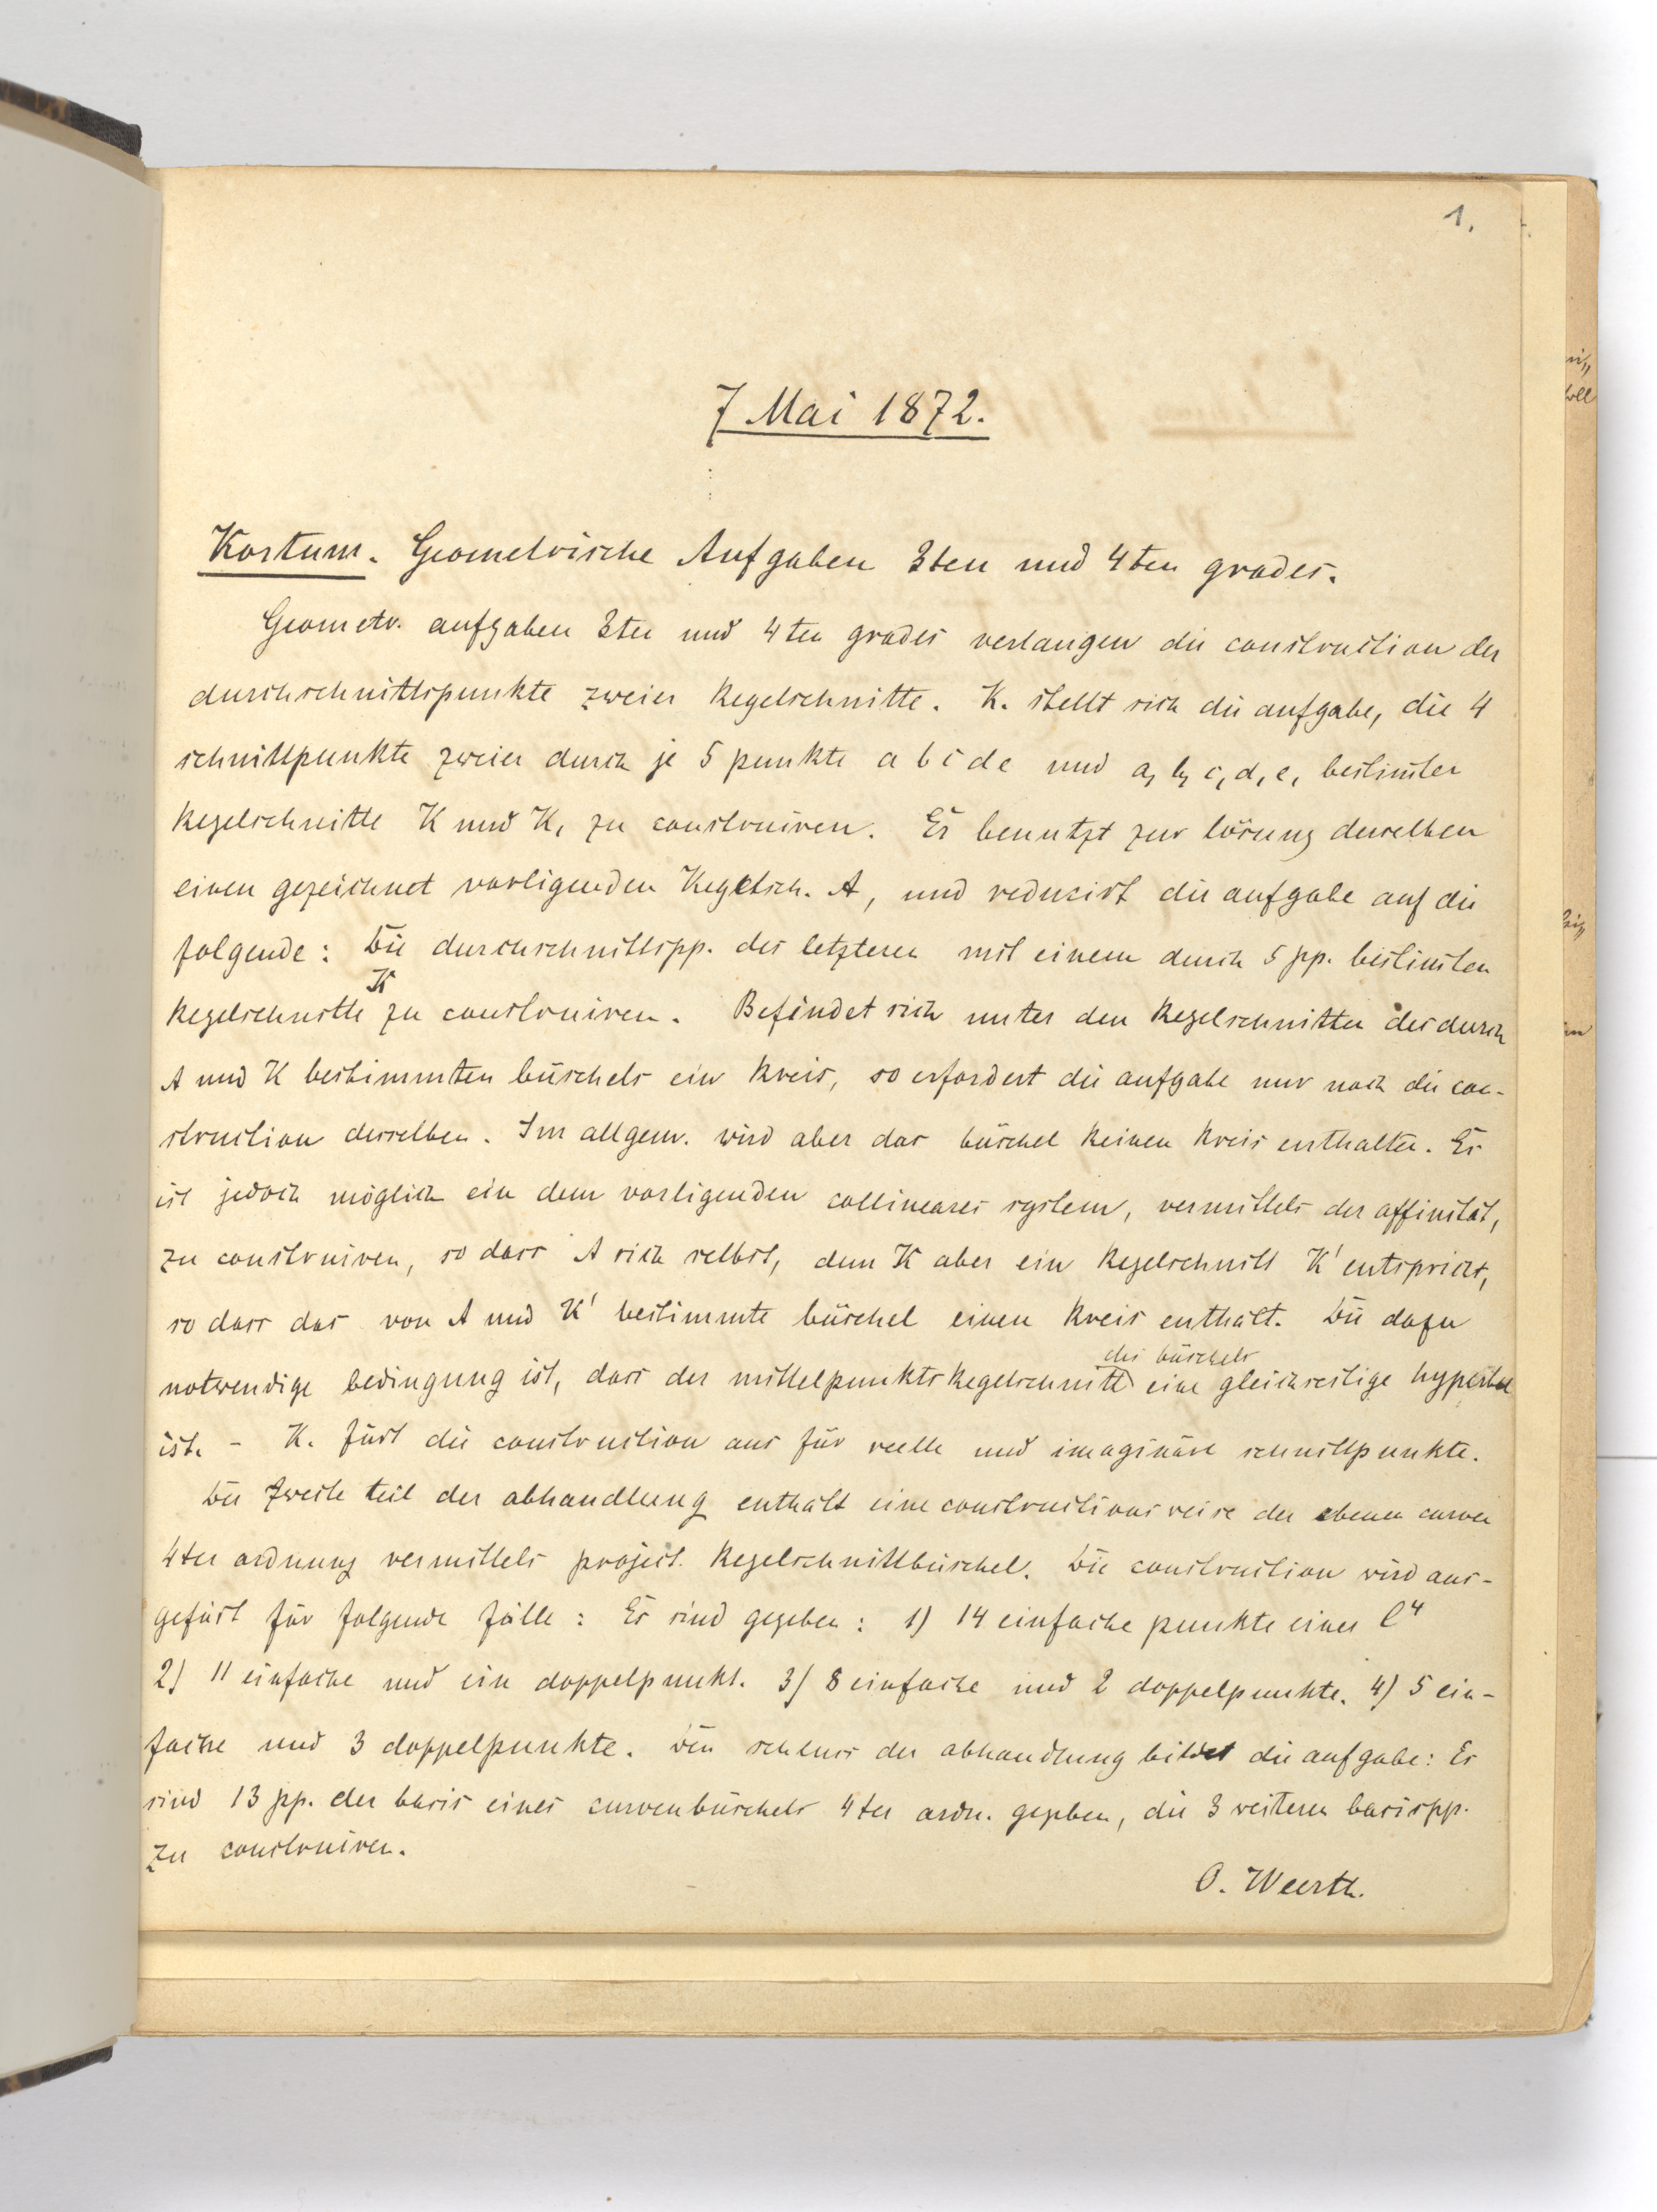 1.
7 Mai 1872.
Kortum. Geometrische Aufgaben 3ten und 4ten grades.
Geometr. aufgaben 3ten und 4ten grades verlangen die construction der
durchschnittspunkte zweier Kegelschnitte. K. stellt sich die aufgabe, die 4
schnittpunkte zweier durch je 5 punkte a b c d e und a, b, c, d, e, bestim̅ter
Kegelschnitte K und K, zu construiren. Er benutzt zur lösung derselben
einen gezeichnet vorligenden Kegelsch. A, und reducirt die aufgabe auf die
folgende: Die durchschnittspp. des letzteren mit einem durch 5 pp. bestim̅ten
Kegelschnitte K zu construiren. Befindet sich unter den Kegelschnitten des durch
A und K bestimmten büschels ein Kreis, so erfordert die aufgabe nur noch die con-
struction desselben. Im allgem. wird aber das büschel keinen Kreis enthalten. Es
ist jedoch möglich ein dem vorligenden collineares system, vermittels der affinität,
zu construiren, so dass A sich selbst, dem K aber ein Kegelschnitt K' entspricht,
so dass das von A und K' bestimmte büschel einen Kreis enthält. Die dazu
notwendige bedingung ist, dass der mittelpunktskegelschnitt des büschels eine gleichseitige hyperbel
ist. - K. fürt die construction aus für reelle und imaginäre schnittpunkte.
Der zweite teil der abhandlung enthält eine constructionsweise der ebenen curven
4ter ordnung vermittels project. Kegelschnittbüschel. Die construction wird aus-
gefürt für folgende fälle: Es sind gegeben: 1) 14 einfache punkte einer C⁴
2) 11 einfache und ein doppelpunkt. 3) 8 einfache und 2 doppelpunkte. 4) 5 ein-
fache und 3 doppelpunkte. Den schluss der abhandlung bildet die aufgabe: Es
sind 13 pp. der basis eines curvenbüschels 4ter ordn. gegeben, die 3 weiteren basispp.
zu construiren.
O. Weerth.